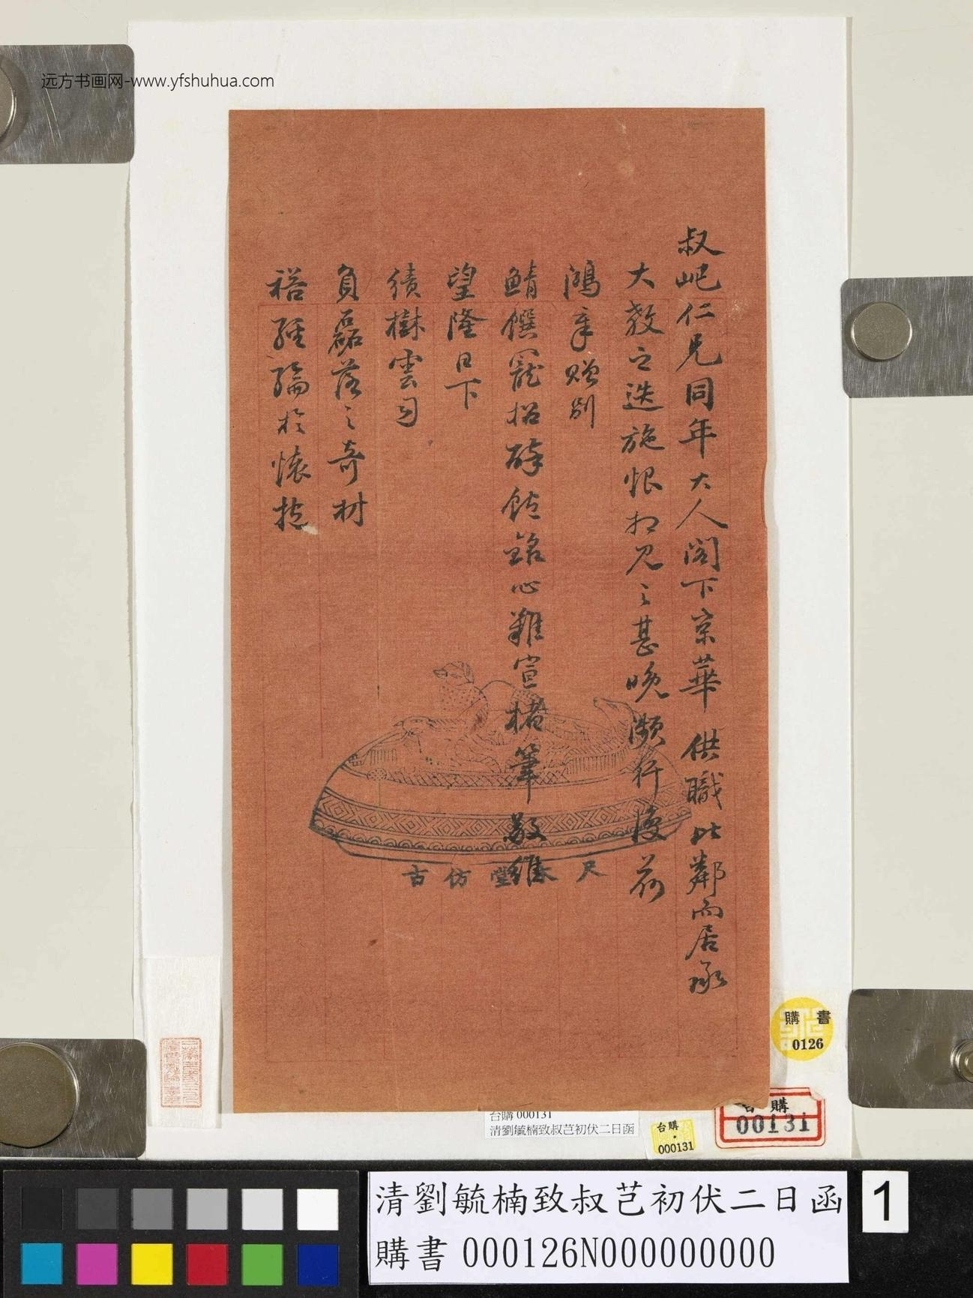 远方书画网-www.yfshuhua.com
叔屺仁兄同年大人阁下京華供職比鄰而居承
大教之迭施恨相見之甚晚瀕行復荷
鴻章贈別
鯖饌寵招醉飽銘心難宣楮筆敬維
望隆日下
績樹雲司
負磊落之奇材
裕經綸於懷抱
尺木堂仿古
購書
0126
台購 000131
清劉毓楠致叔芑初伏二日函
台購
000131
購
00131
清劉毓楠致叔芑初伏二日函
購書 000126N000000000
1